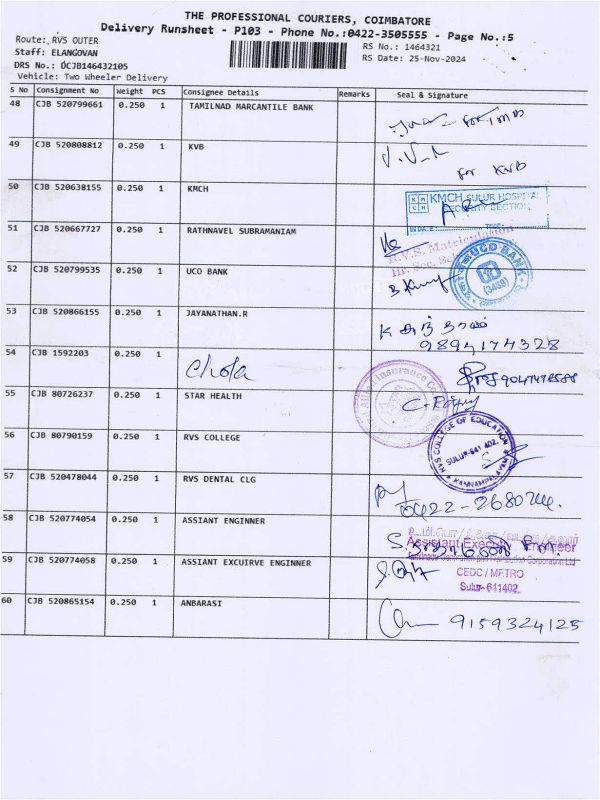 THE PROFESSIONAL COURIERS, COIMBATORE
Delivery Runsheet - P103 - Phone No.:0422-3505555 - Page No.:5
Route: RVS OUTER
RS No.: 1464321
Staff: ELANGOVAN
RS Date: 25-Nov-2024
DRS No.: DCJB146432105
Vehicle: Two Wheeler Delivery
S No Consignment No Weight PCS Consignee Details Remarks Seal & Signature
48 CJB 520799661 0.250 1 TAMILNAD MARCANTILE BANK
for TMB
49 CJB 520808812 0.250 1 KVB
for KVB
50 CJB 520638155 0.250 1 KMCH
KMCH SULUR HOSPITAL
SECURITY SECTION
51 CJB 520667727 0.250 1 RATHNAVEL SUBRAMANIAM
R.V.S. Matriculation
Hr. Sec.
52 CJB 520799535 0.250 1 UCO BANK
UCO BANK
(3489)
53 CJB 520866155 0.250 1 JAYANATHAN.R
9894174328
54 CJB 1592203 0.250 1 Chola
Insurance Co
55 CJB 80726237 0.250 1 STAR HEALTH
56 CJB 80790159 0.250 1 RVS COLLEGE
COLLEGE OF EDUCATION
SULUR-641 402.
KANNAMPALAYAM
57 CJB 520478044 0.250 1 RVS DENTAL CLG
58 CJB 520774054 0.250 1 ASSIANT ENGINNER
Assistant Executive Engineer
59 CJB 520774058 0.250 1 ASSIANT EXCUIRVE ENGINNER
CEDC / METRO
Sulur-641402
60 CJB 520865154 0.250 1 ANBARASI
9159324125